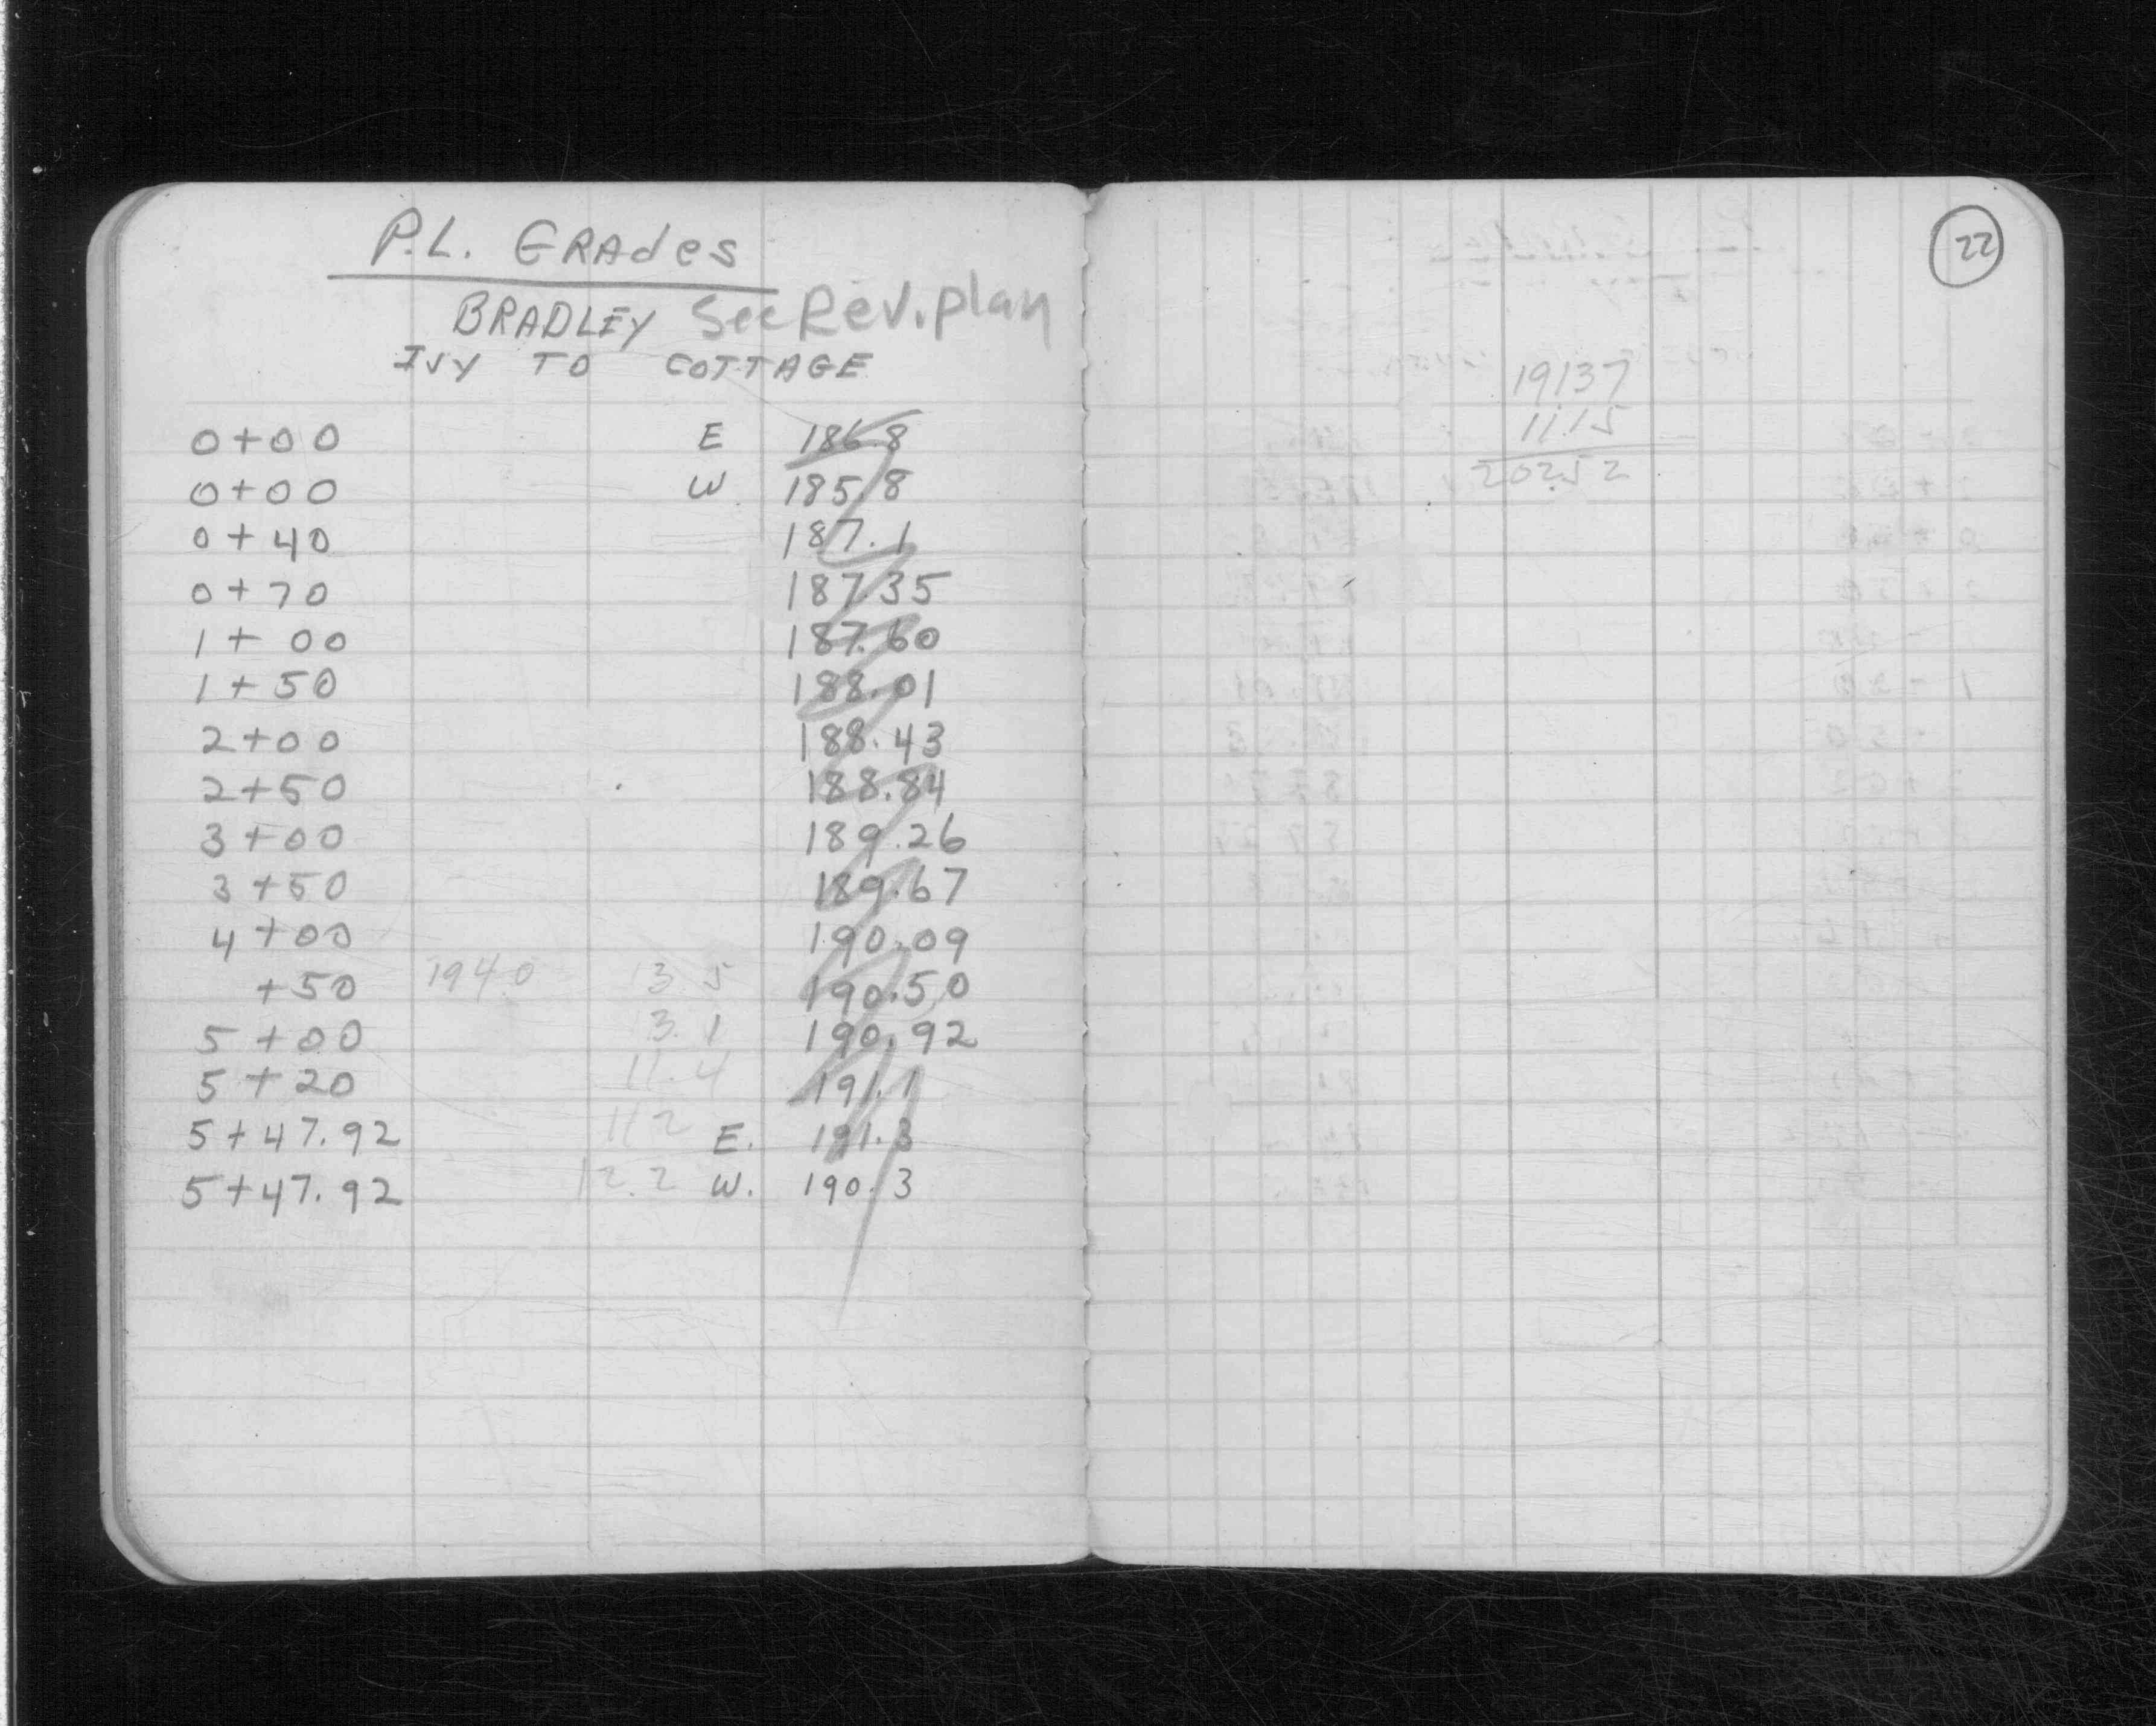 P.L. GRAdes
BRADLEY See Rev. plan
IVY TO COTTAGE
0+00 E 186.8
0+00 W 185.8
0+40 187.1
0+70 187.35
1+00 187.60
1+50 188.01
2+00 188.43
2+50 188.84
3+00 189.26
3+50 189.67
4+00 190.09
+50 194.0 13.5 190.50
5+00 13.1 190.92
5+20 11.4 191.1
5+47.92 11.2 E. 191.3
5+47.92 12.2 W. 190.3
22
191.37
11.15
202.52